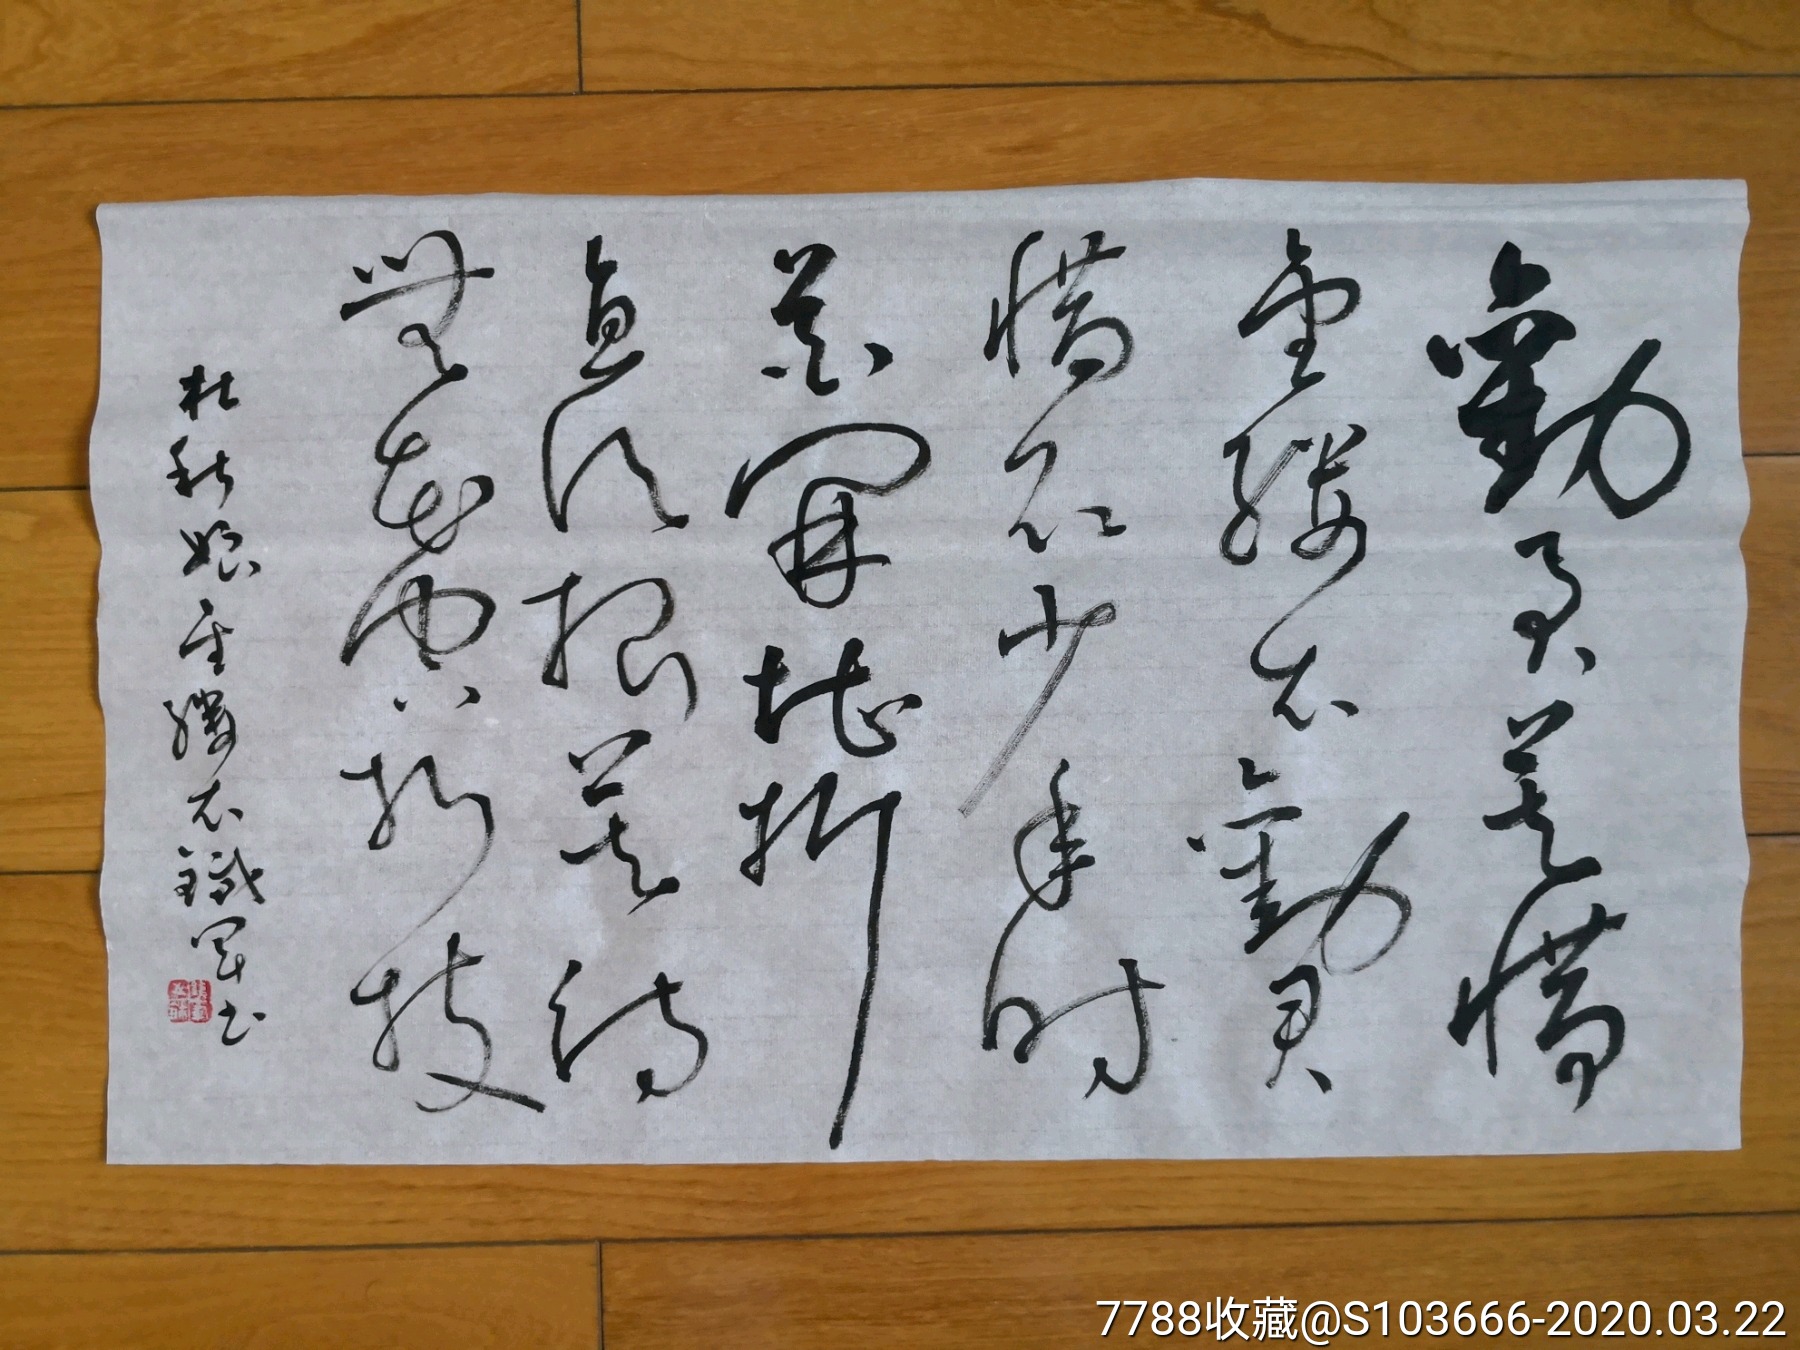 勸君莫惜
金縷衣勸君
惜取少年时
花開堪折
直须折莫待
無花空折枝
杜秋娘金縷衣鐵軍书
7788收藏@S103666-2020.03.22